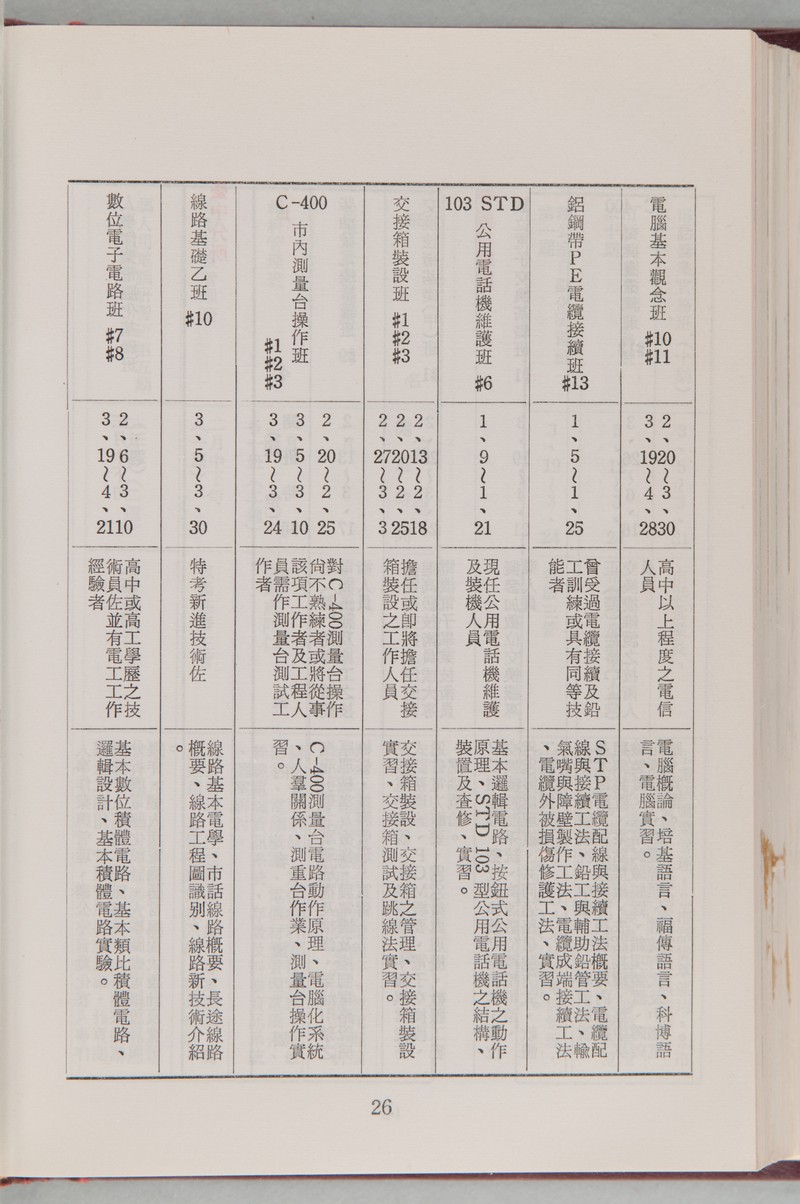 電腦基本觀念班 #10 #11
2、20～3、30
3、19～4、28
高中以上程度之電信
人員
電腦概論、培基語言、福傳語言、科博語
言、電腦實習。
鋁鋼帶PE電纜接續班 #13
1、5～1、25
曾受過電纜接續及鉛
工訓練或具有同等技
能者
STP電纜配線與接續工法概要、電纜配
線與接續工法、鉛工與輔助鉛管工法、輸
氣嘴與障壁製作工法、電纜成端接續工法
、電纜外被損傷修護工法、實習。
103 STD 公用電話機維護班 #6
1、9～1、21
現任公用電話機維護
及裝機人員
基本邏輯電路、按鈕式公用電話機之動作
原理、STD 103 型公用電話機之結構、
裝置及查修、實習。
交接箱裝設班 #1 #2 #3
2、13～2、18
2、20～2、25
2、27～3、3
擔任或卽將擔任交接
箱裝設之工作人員
交接箱裝設、交接箱之管理、交接箱裝設
實習、交接箱測試及跳線法實習。
C-400 市內測量台操作班 #1 #2 #3
2、20～2、25
3、5～3、10
3、19～3、24
對C-400測量台操作
尙不熟練者或將從事
該項工作者及工程人
員需作測量台測試工
作者
C-400測量台電路動作原理、電腦化系統
、人羣關係、測重台作業、測量台操作實
習。
線路基礎乙班 #10
3、5～3、30
特考新進技術佐
線路基本電學、市話線路概要、長途線路
概要、線路工程圖識別、線路新技術介紹
。
數位電子電路班 #7 #8
2、6～3、10
3、19～4、21
高中或高工學歷之技
術員佐並有電工工作
經驗者
基本數位積體電路、基本類比積體電路、
邏輯設計、基本積體電路實驗。
26